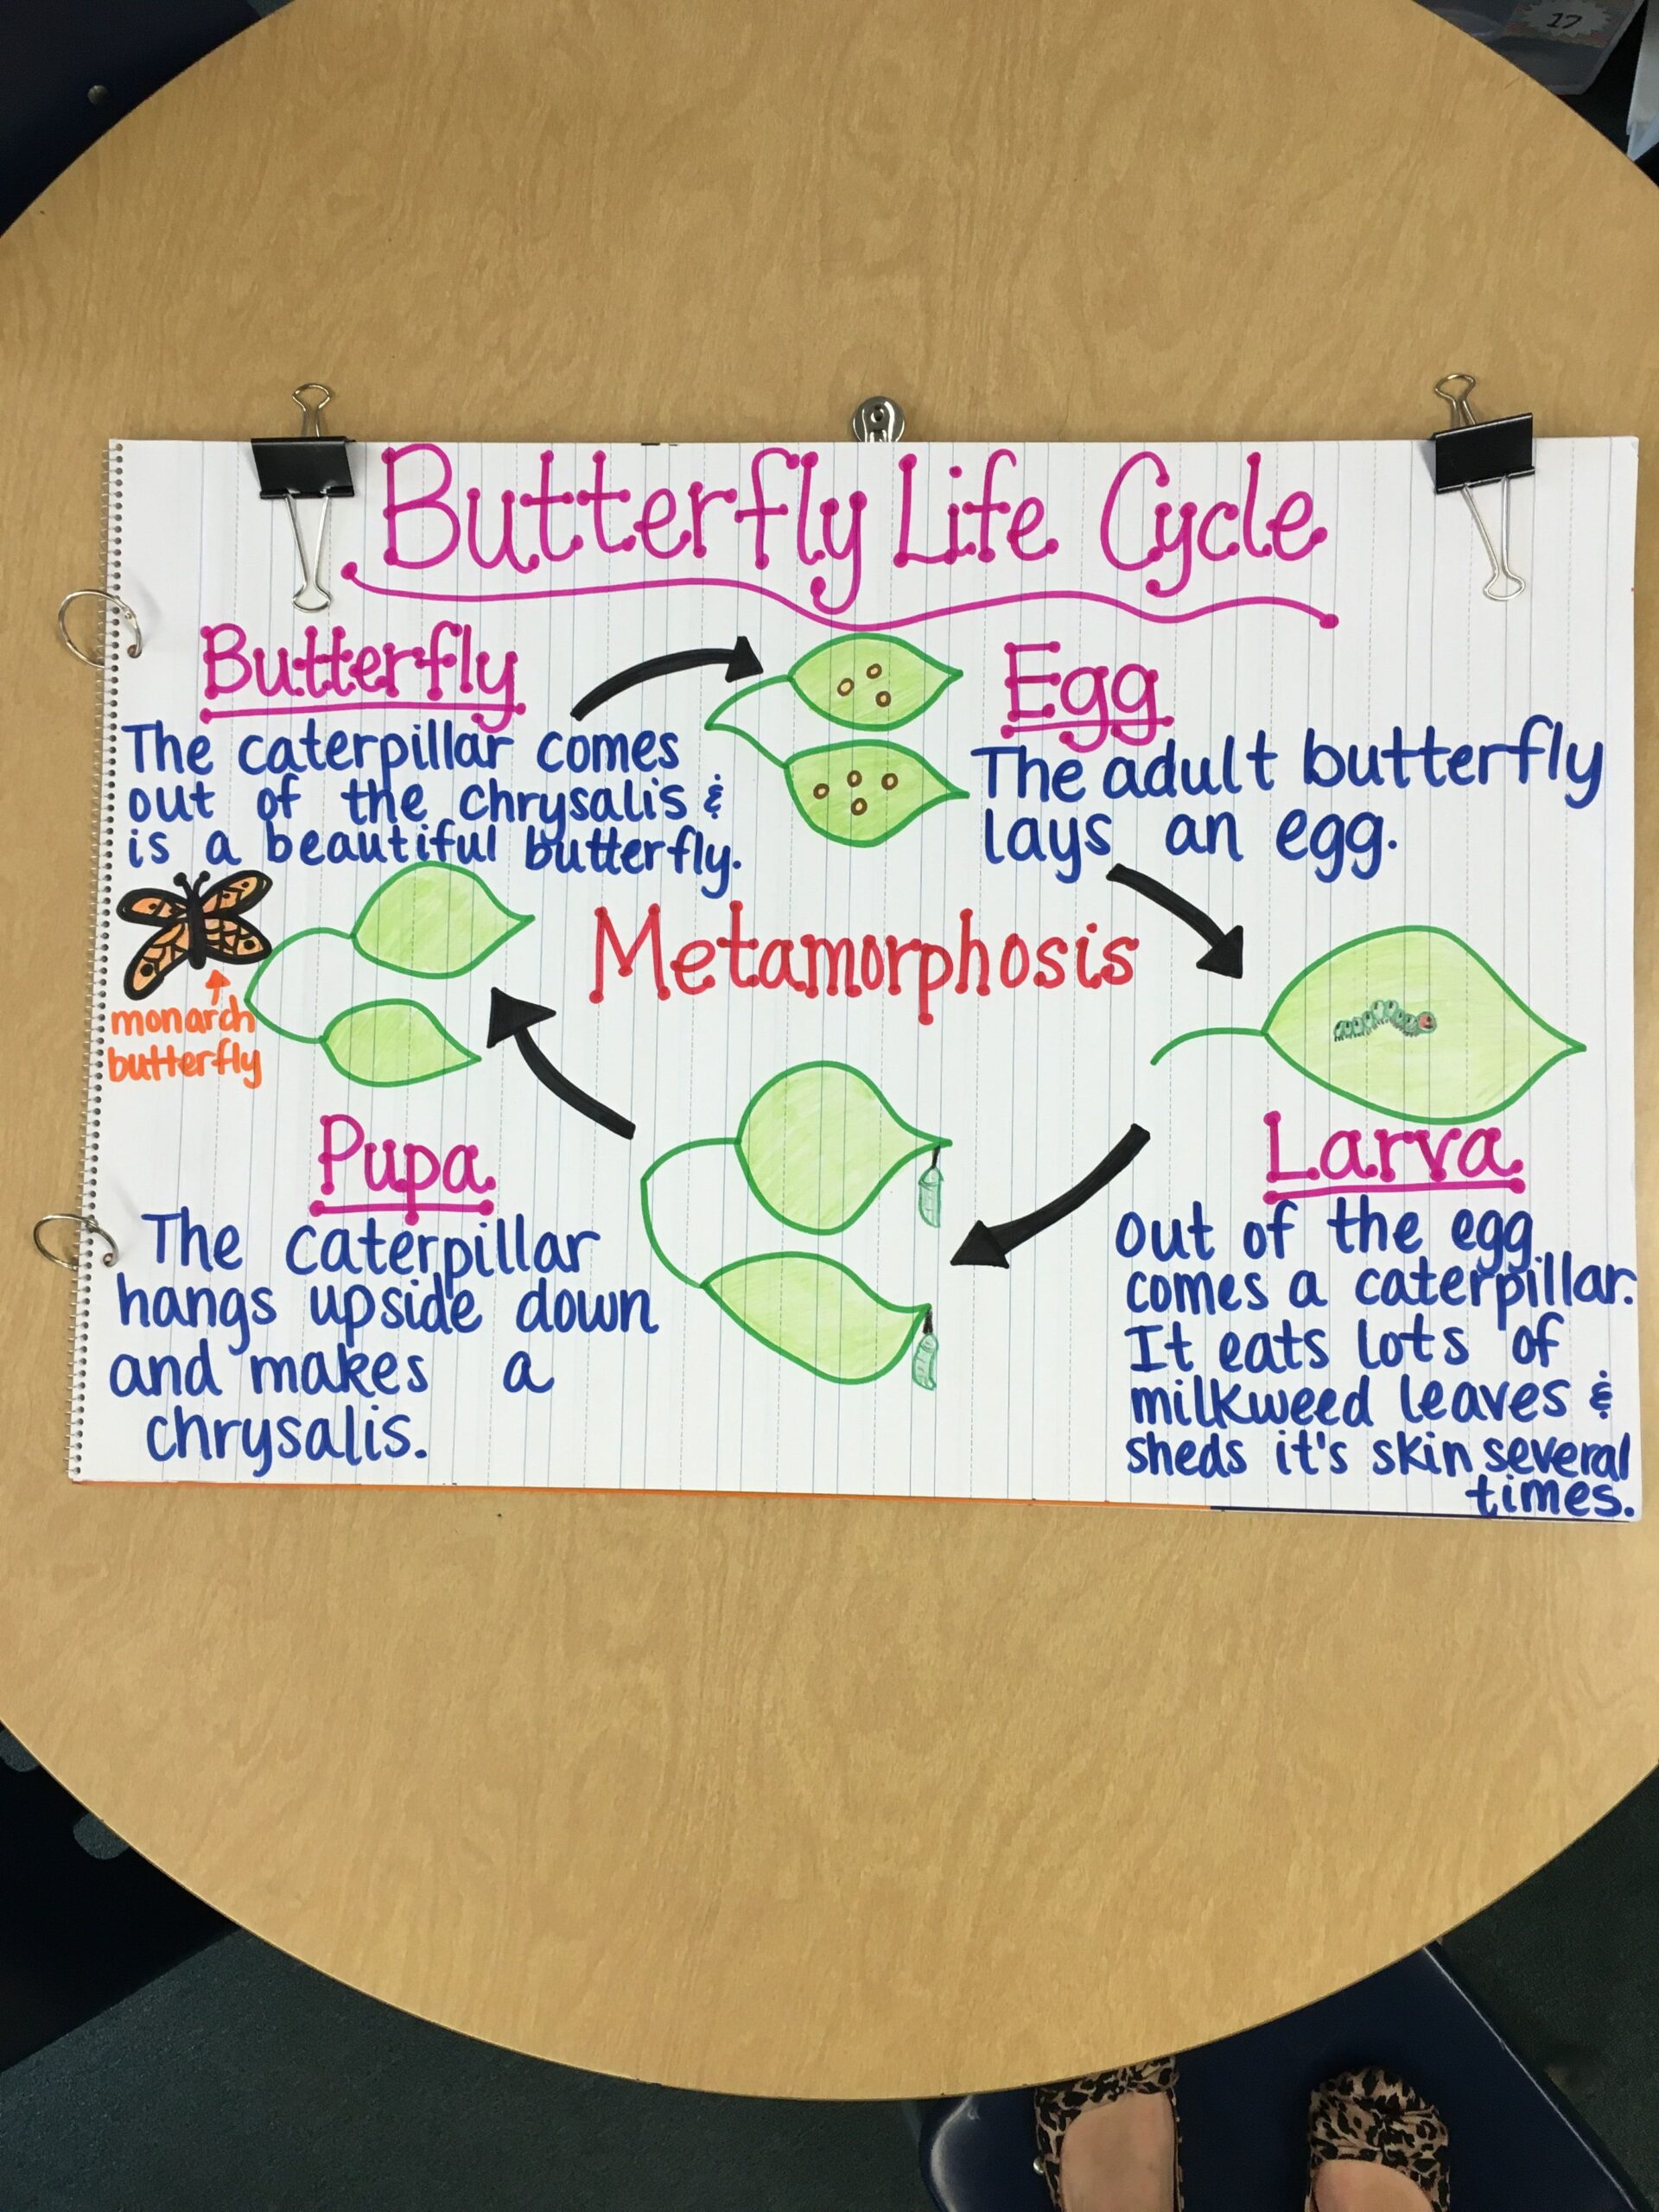 17
Butterfly Life Cycle
Butterfly
The caterpillar comes
out of the chrysalis &
is a beautiful butterfly.
monarch
butterfly
Egg
The adult butterfly
lays an egg.
Metamorphosis
Larva
out of the egg
comes a caterpillar.
It eats lots of
milkweed leaves &
sheds it's skin several
times.
Pupa
The caterpillar
hangs upside down
and makes a
chrysalis.